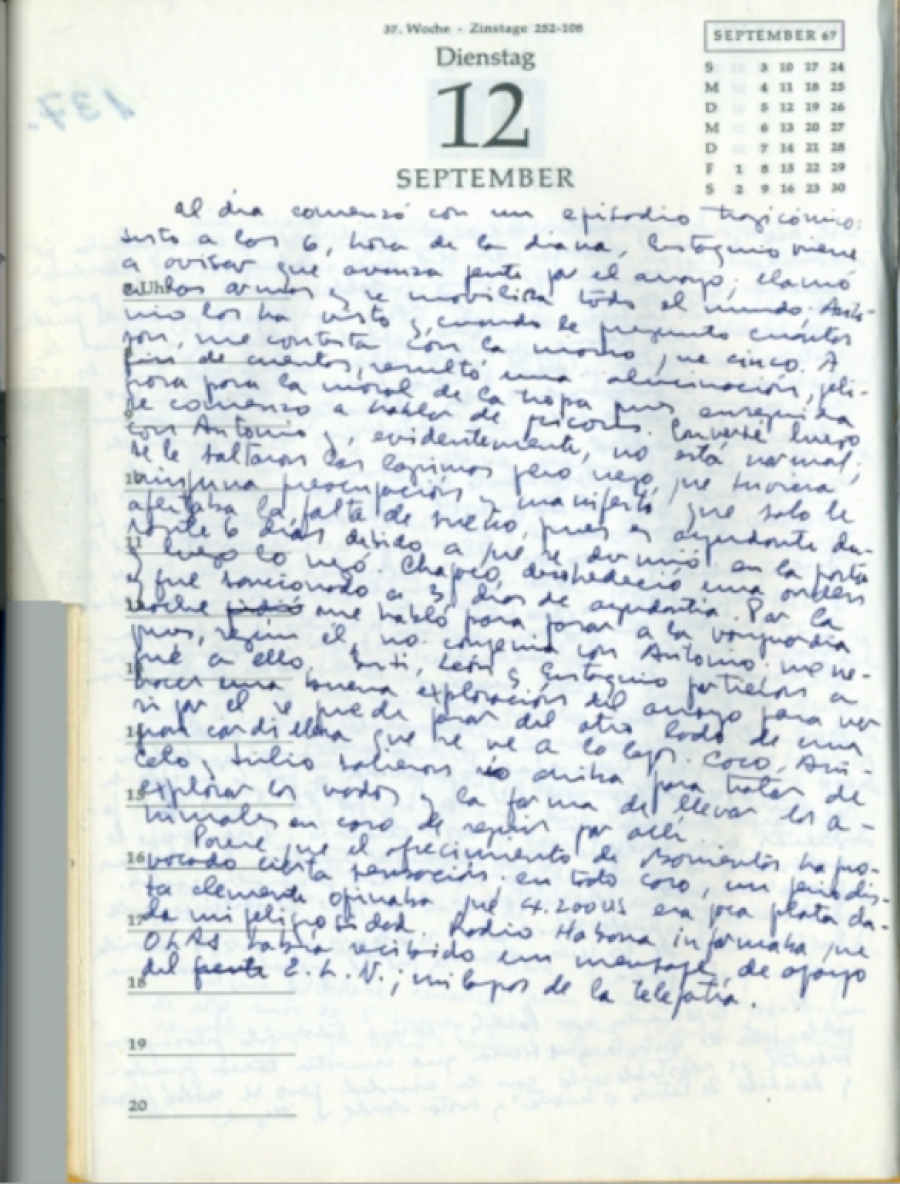 37. Woche - Zinstage 252-108
Dienstag
12
SEPTEMBER
SEPTEMBER 67
S 3 10 17 24
M 4 11 18 25
D 5 12 19 26
M 6 13 20 27
D 7 14 21 28
F 1 8 15 22 29
S 2 9 16 23 30
137.
al día comenzó con un episodio tragicómico:
justo a las 6, hora de la diana, Eustaquio viene
a avisar que avanza gente por el arroyo; llamó
a las armas y se moviliza todo el mundo. Anto-
nio los ha visto y, cuando le pregunto cuántos
son, me contesta con la mano que cinco. A
fin de cuentas, resultó una alucinación, peli-
grosa para la moral de la tropa pues enseguida
se comenzó a hablar de psicosis. Conversé luego
con Antonio y, evidentemente, no está normal;
se le saltaron las lágrimas pero negó que tuviera
ninguna preocupación y manifestó que solo le
afectaba la falta de sueño, pues es ayudante du-
rante 6 días debido a que se durmió en la posta
y luego lo negó. Chapaco desobedeció una orden
y fue sancionado a 3 días de ayudantía. Por la
noche me habló para pasar a la vanguardia
pues, según él no congenia con Antonio; me ne-
gué a ello. Inti, León y Eustaquio partieron a
hacer una buena exploración del arroyo para ver
si por el se puede pasar del otro lado de una
gran cordillera que se ve a lo lejos. Coco, Ani-
ceto y Julio salieron río arriba para tratar de
explorar los vados y la forma de llevar los a-
nimales en caso de seguir por allí.
Parece que el ofrecimiento de Barrientos ha pro-
vocado cierta sensación. en todo caso, un periodis-
ta demente opinaba que 4.200 US era poca plata da-
da mi peligrosidad. Radio Habana informaba que
OLAS había recibido un mensaje de apoyo
del E.L.N.; milagros de la telepatía.
8 Uhr
9
10
11
12
13
14
15
16
17
18
19
20